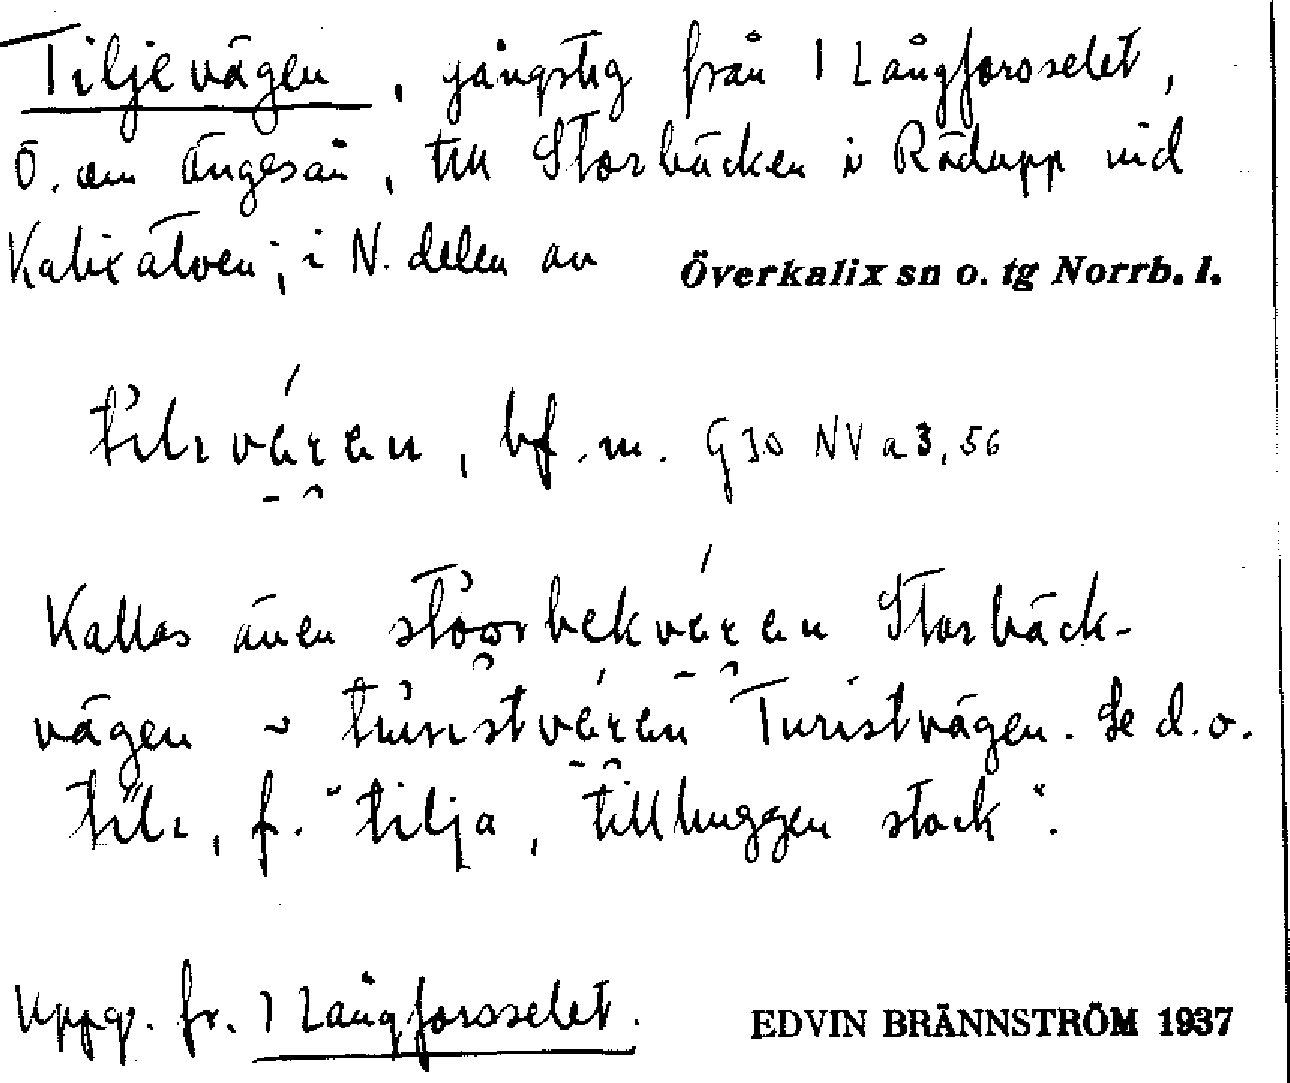 Tiljevägen, gångstig från 1 Långforsselet,
Ö. om Ängesån, till Storbäcken i Rödupp vid
Kalixälven; i N. delen av Överkalix sn o. tg Norrb. l.
bf. m. G 30 NV a 3, 56
Kallas även Storbäck-
vägen Turistvägen. Se d.o.
f. "tilja, tillhuggen stock".
Uppg. fr. 1 Långforsselet.
EDVIN BRÄNNSTRÖM 1937